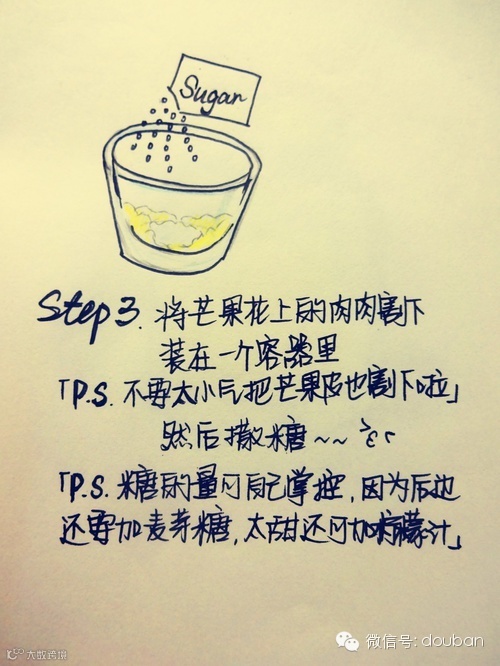 Sugar
Step 3. 将芒果花上的肉肉割下
装在一个容器里
「P.S. 不要太小气把芒果皮也割下啦」
然后撒糖~~ >ε<
「P.S. 糖的量可自己掌控,因为后边
还要加麦芽糖,太甜还可加柠檬汁」
微信号: douban
大数跨境